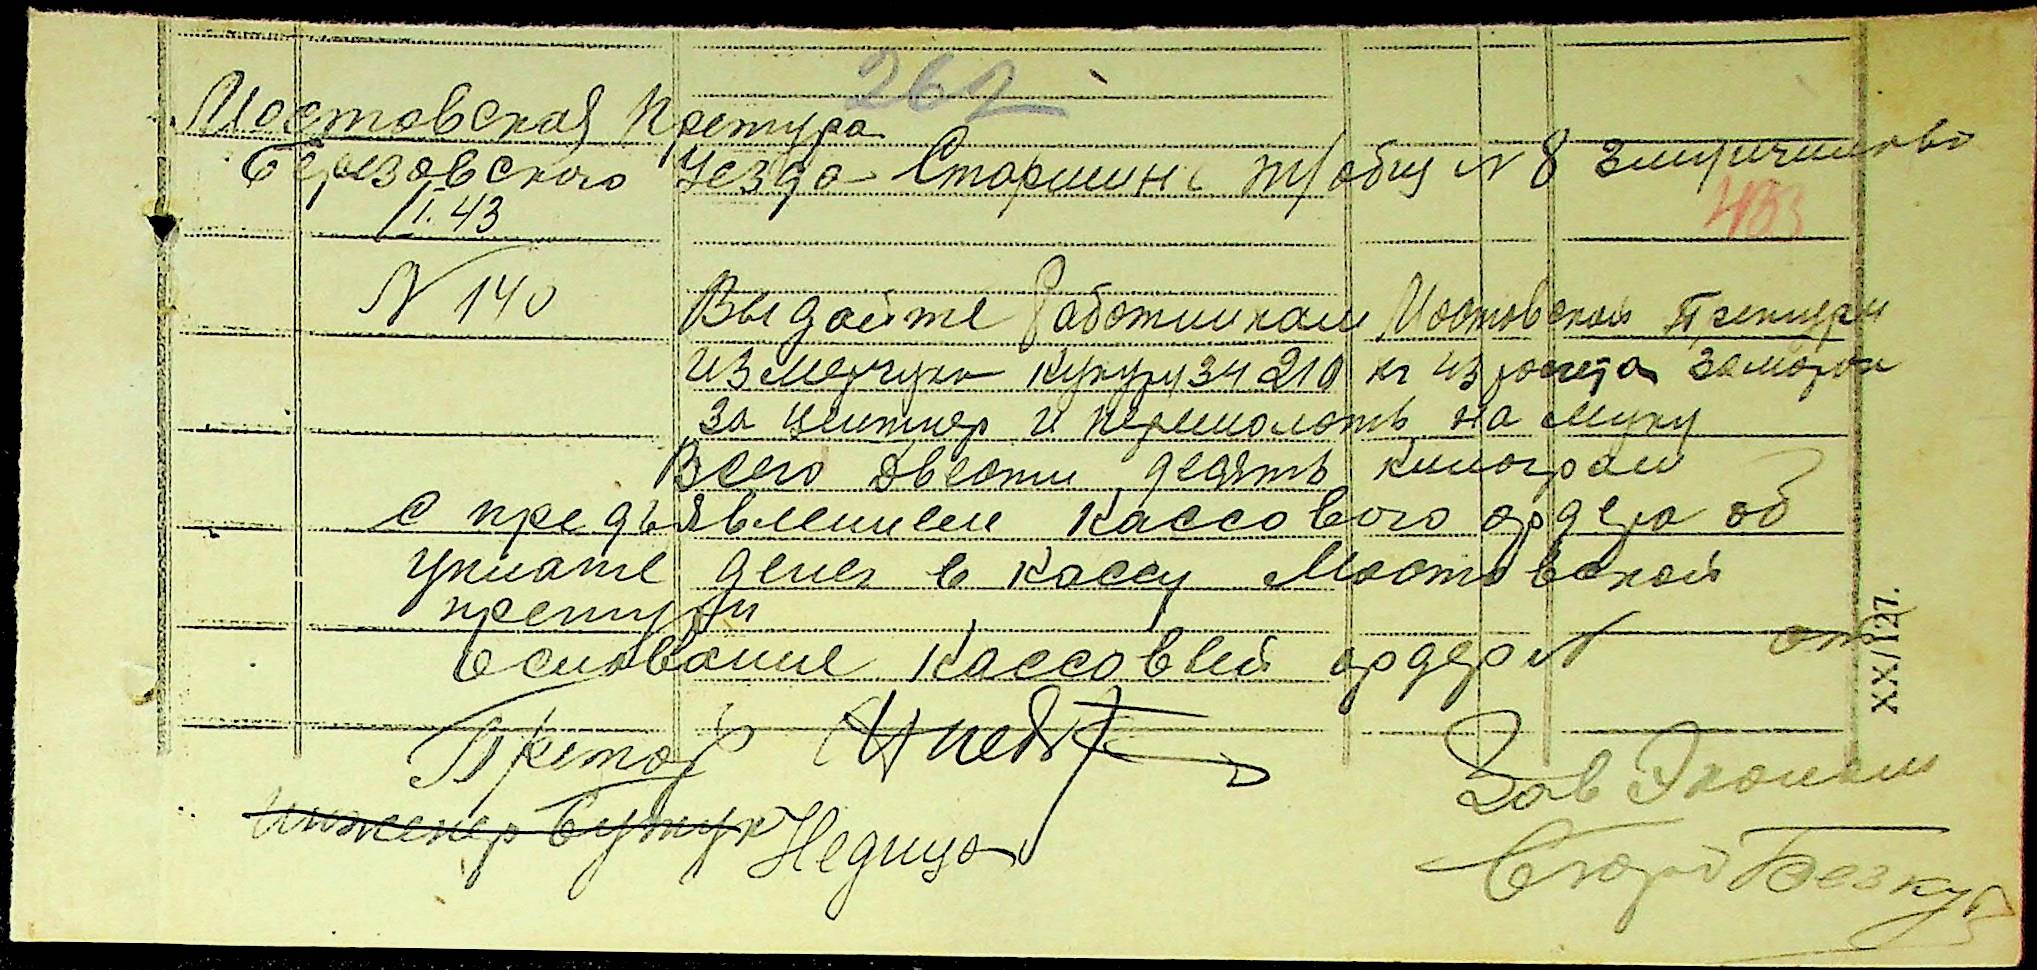 262
Мостовская Претура
Березовского Уезда Старшине т/общ N 8
433
/I.43
N 140
Выдайте Работникам Мостовской Претури
из мерчука кукурузи 210 кг из
за центнер и перемолоть на муку
Всего двести десять килограм
с предъявлением кассового ордера об
уплате денег в кассу Мостовской
претури
Основание кассовый ордер N от
Претор
Зав Эконом
Инженер
XX/127.